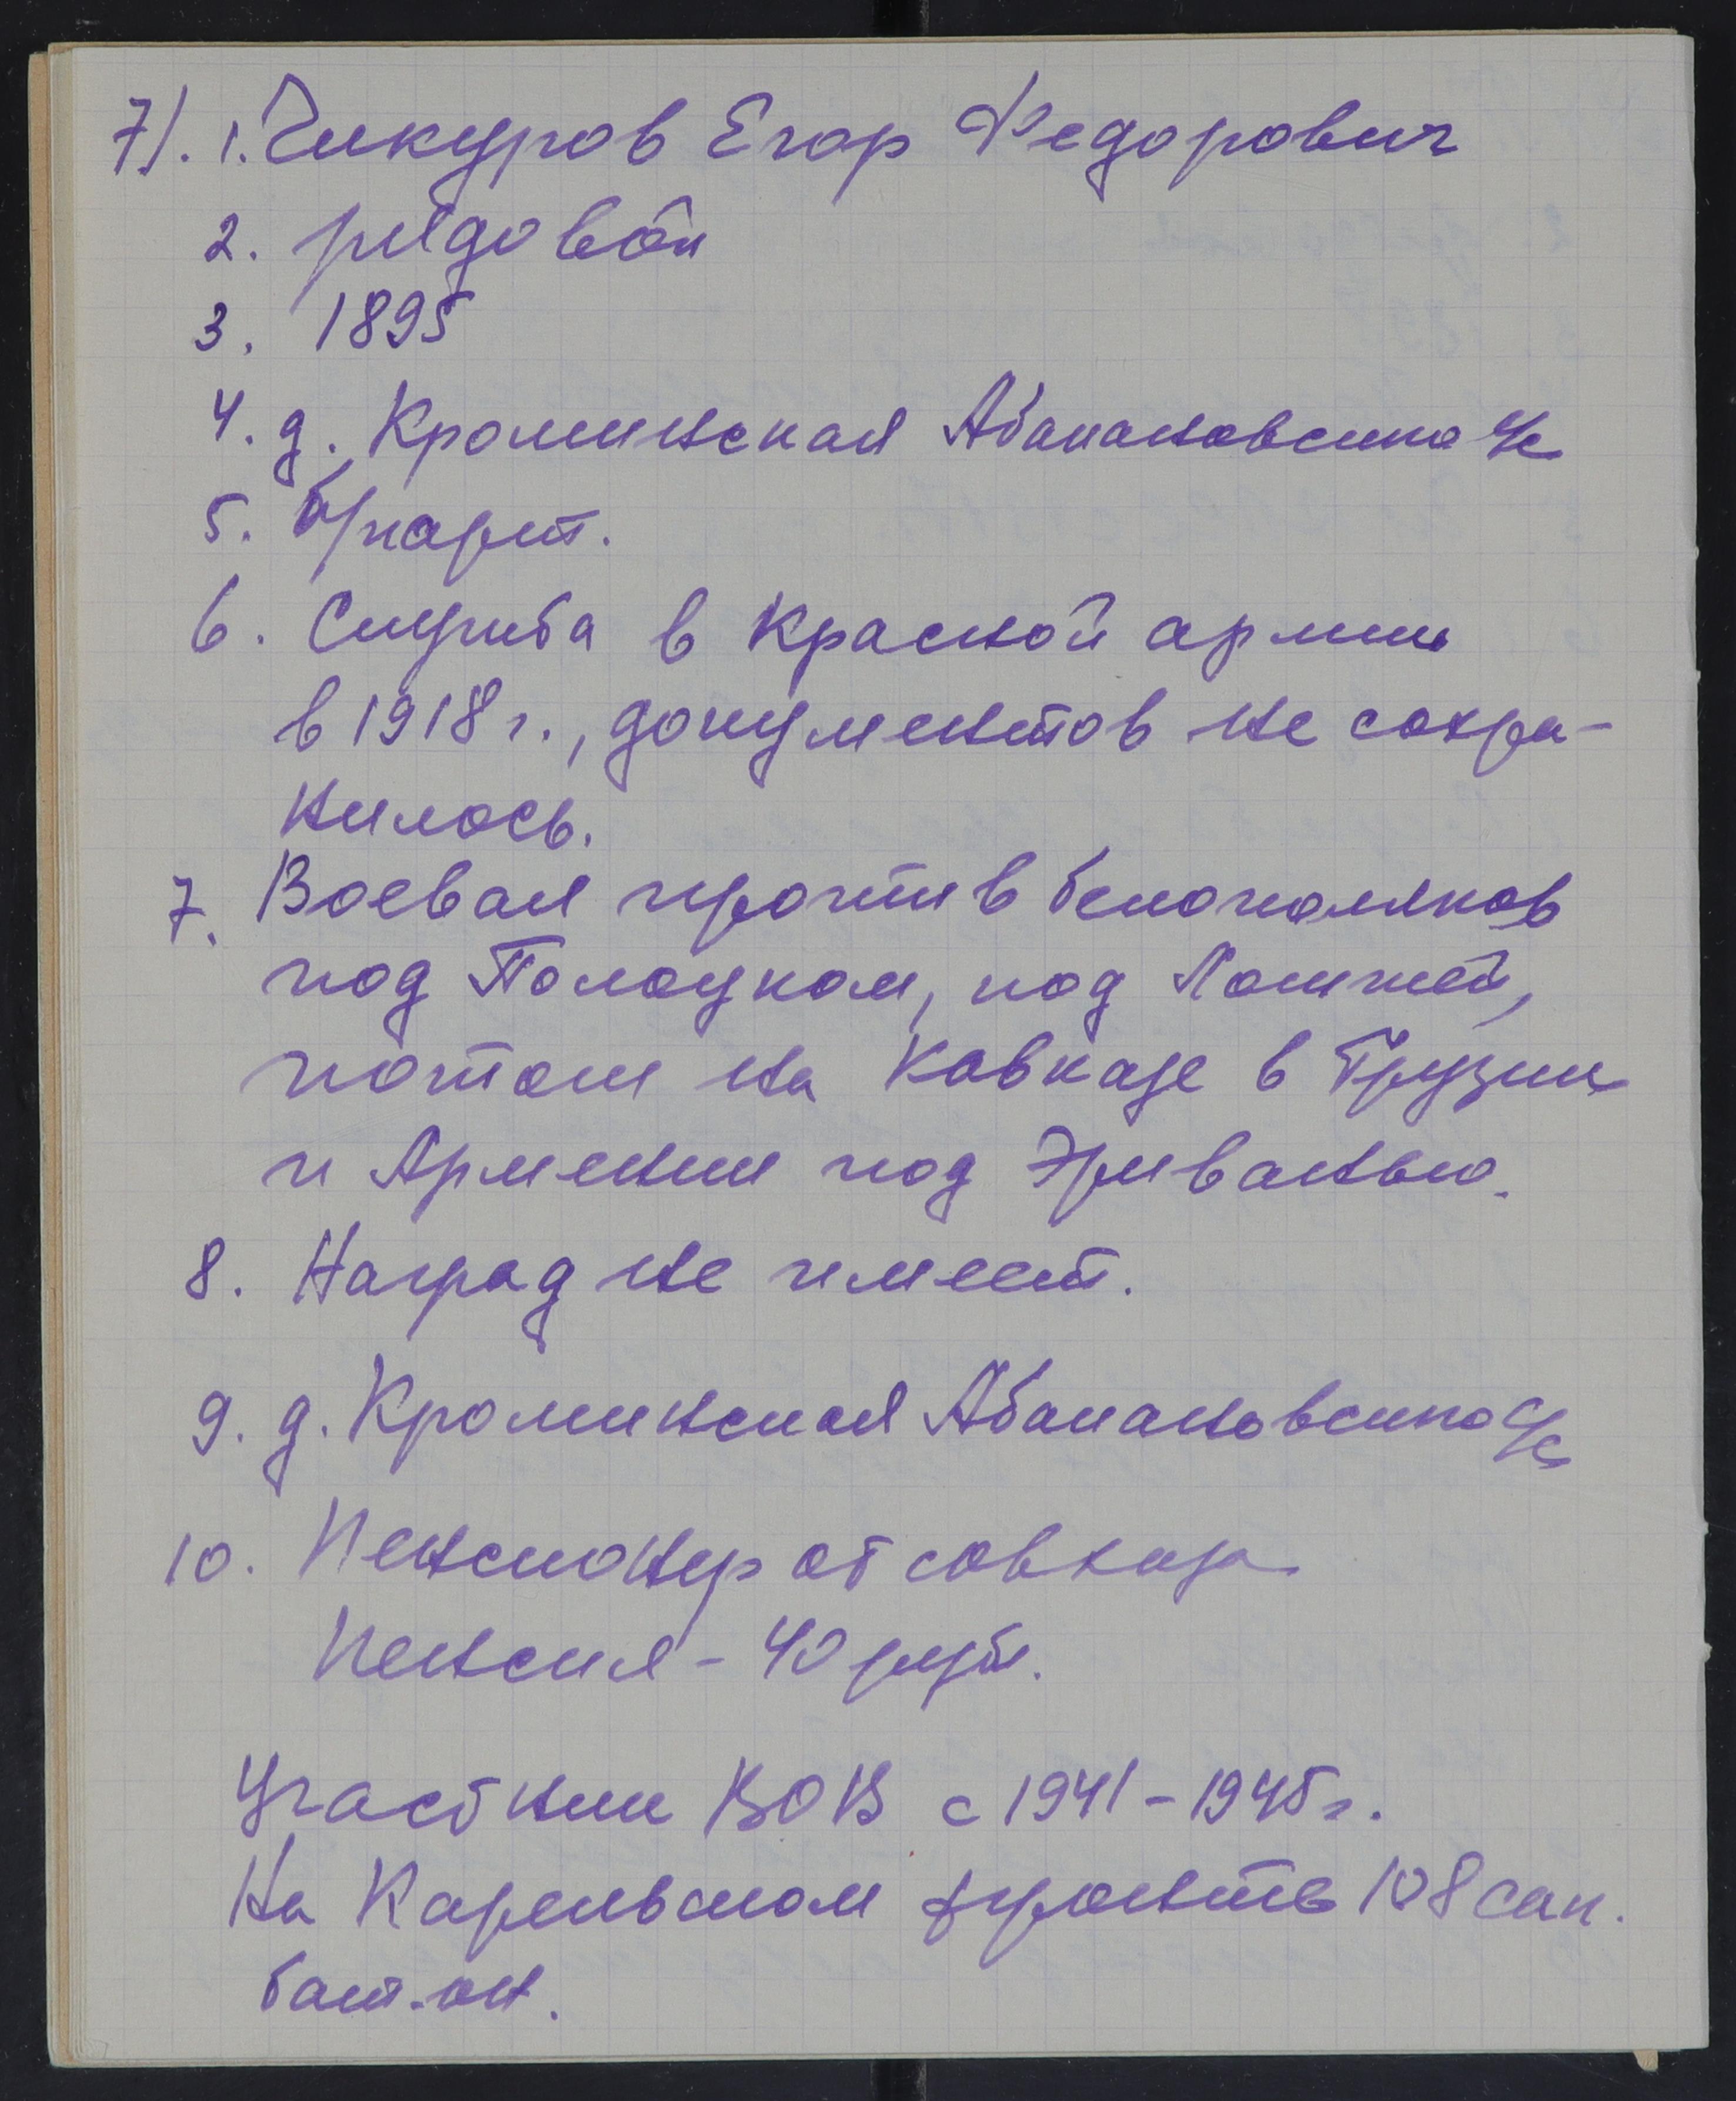 7). 1. Чикуров Егор Федорович
2. рядовой
3. 1895
4. д. Кроминская Абакановского с/с
5. б/парт.
6. Служба в Красной армии
в 1918 г., документов не сохра-
нилось.
7. Воевал против белополяков
под Полоцком, под Ломжей,
потом на Кавказе в Грузии
и Армении под Эриванью.
8. Наград не имеет.
9. д. Кроминская Абакановского с/с
10. Пенсионер от совхоза
Пенсия - 40 руб.
Участник ВОВ с 1941 - 1945 г.
На Карельском фронте 108 сап.
бат-он.